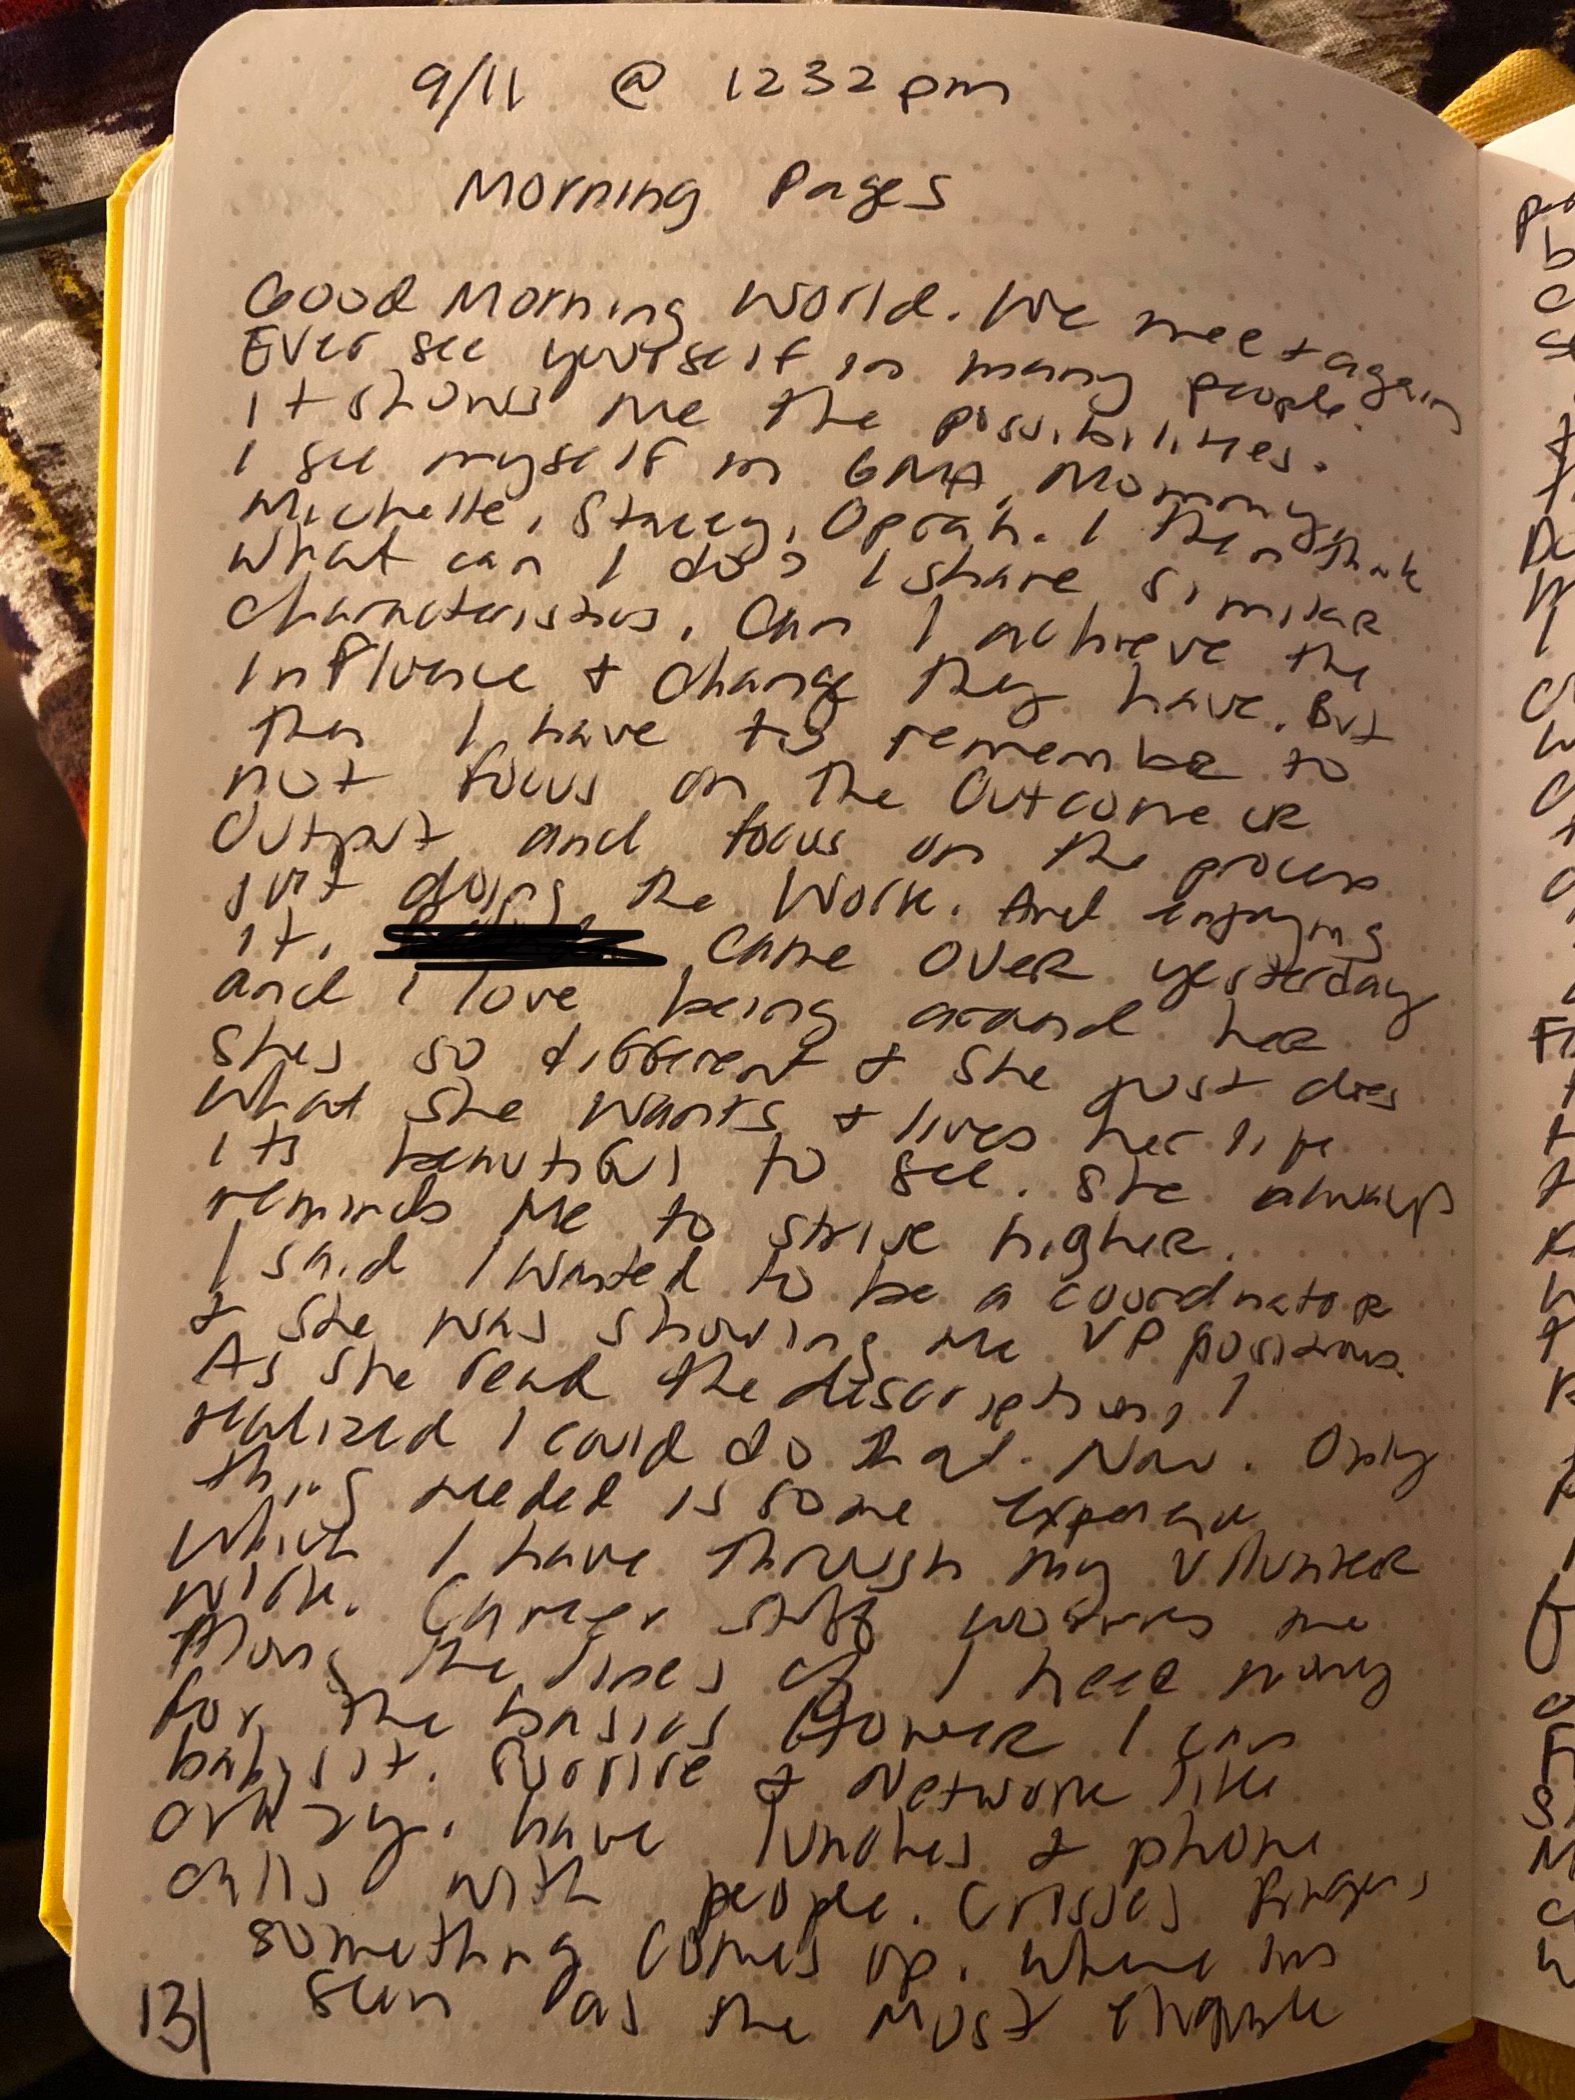 9/11 @ 1232pm
Morning Pages
Good Morning World. We meet again
Ever see yourself in many people.
It shows me the possibilities.
I see myself in GMA, Mommy,
Michelle, Stacey, Oprah. I then think
what can I do? I share similar
characteristics. Can I achieve the
influence + change they have. But
then I have to remember to
not focus on the outcome or
output and focus on the process
just doing the work. And enjoying
it. came over yesterday
and I love being around her
shes so different + she just does
what she wants + lives her life
its beautiful to see. She always
reminds me to strive higher.
I said I wanted to be a coordinator
+ she was showing me VP positions.
As she read the discription, I
realized I could do that. Now. Only
thing needed is some experience
which I have through my volunteer
work. Career stuff worries me
Along the lines of I need money
for the basics However I can
babysit. Survive + Network like
crazy. have lunches + phone
calls with people. Crosses fingers
something comes up. where im
seen as the most
131